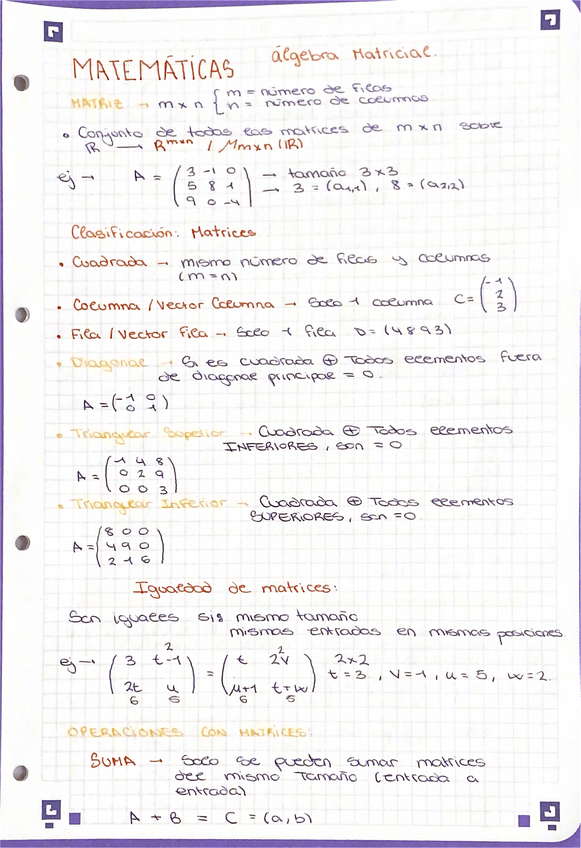 álgebra Matricial.
MATEMÁTICAS
MATRIZ → m x n { m = número de filas
n = número de columnas
• Conjunto de todas las matrices de m x n sobre
ℝ → R^mxn / Mmxn (ℝ)
ej → A = ( 3 -1 0 ) → tamaño 3x3
5 8 1 → 3 = (a1,1) , 8 = (a2,2)
9 0 -4
Clasificación: Matrices
• Cuadrada → mismo número de filas y columnas
(m = n)
• Columna / Vector Columna → Solo 1 columna C = ( -1
2
3 )
• Fila / Vector Fila → Solo 1 fila D = (4 8 9 3)
• Diagonal → Si es cuadrada ⊕ Todos elementos fuera
de diagonal principal = 0.
A = ( -1 0
0 1 )
• Triangular Superior → Cuadrada ⊕ Todos elementos
INFERIORES, son = 0
A = ( -1 4 8
0 2 9
0 0 3 )
• Triangular Inferior → Cuadrada ⊕ Todos elementos
SUPERIORES, son = 0
A = ( 8 0 0
4 9 0
2 1 6 )
Igualdad de matrices:
Son iguales si: mismo tamaño
mismas entradas en mismas posiciones
2 2
ej → ( 3 t-1 ) = ( t 2v ) 2x2
t = 3 , v = 1 , u = 5 , w = 2.
2t u u+1 t+w
6 5 6 5
OPERACIONES CON MATRICES:
SUMA → Solo se pueden sumar matrices
del mismo tamaño (entrada a
entrada)
A + B = C = (a,b)